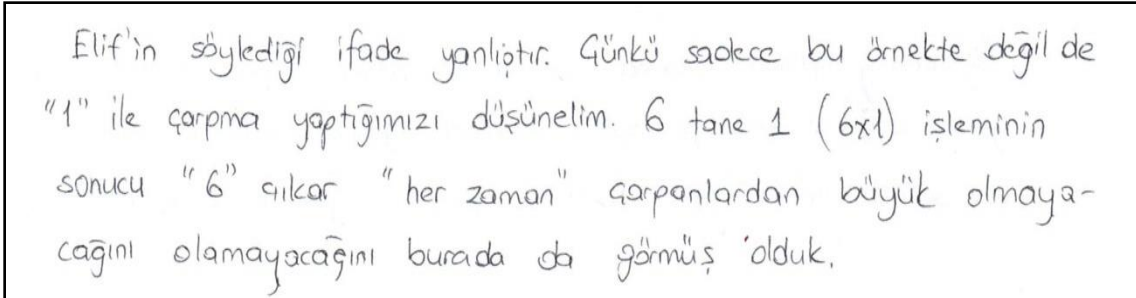 Elif'in söylediği ifade yanlıştır. Çünkü sadece bu örnekte değil de
"1" ile çarpma yaptığımızı düşünelim. 6 tane 1 (6x1) işleminin
sonucu "6" çıkar "her zaman" çarpanlardan büyük olmaya-
cağını olamayacağını burada da görmüş olduk.